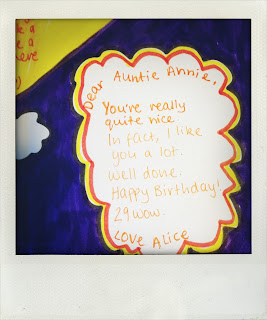 Dear Auntie Annie,
You're really
quite nice
In fact, I like
you a lot.
Well done.
Happy Birthday!
29 wow.
Love Alice